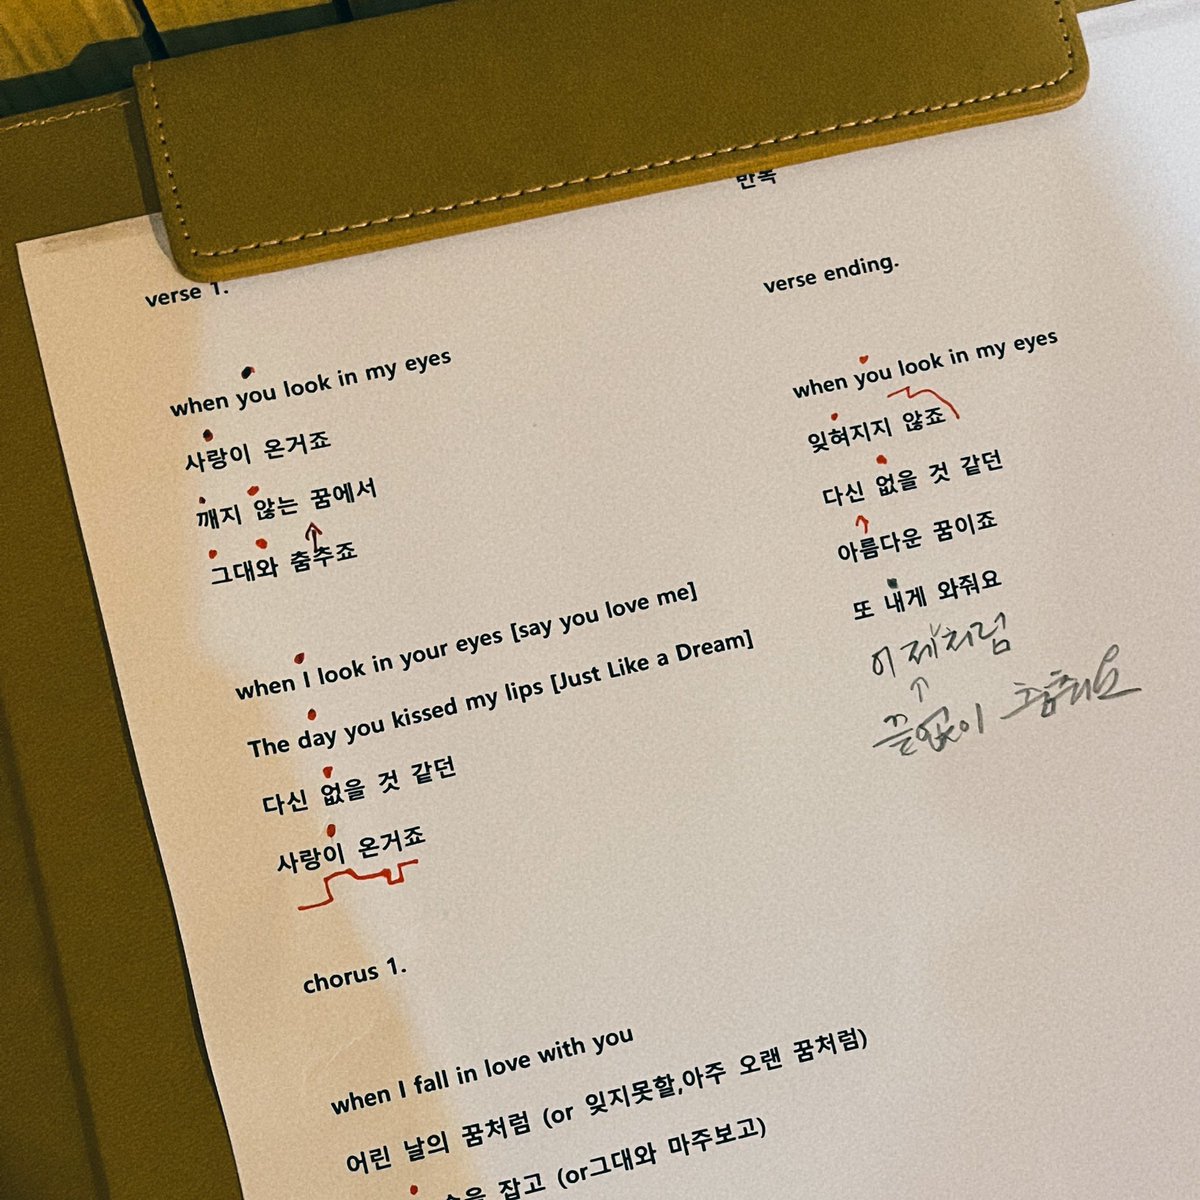 verse 1.
when you look in my eyes
사랑이 온거죠
깨지 않는 꿈에서
그대와 춤추죠
when I look in your eyes [say you love me]
The day you kissed my lips [Just Like a Dream]
다신 없을 것 같던
사랑이 온거죠
chorus 1.
when I fall in love with you
어린 날의 꿈처럼 (or 잊지못할,아주 오랜 꿈처럼)
잡고 (or그대와 마주보고)
반복
verse ending.
when you look in my eyes
잊혀지지 않죠
다신 없을 것 같던
아름다운 꿈이죠
또 내게 와줘요
어제처럼
끝없이 춤춰요